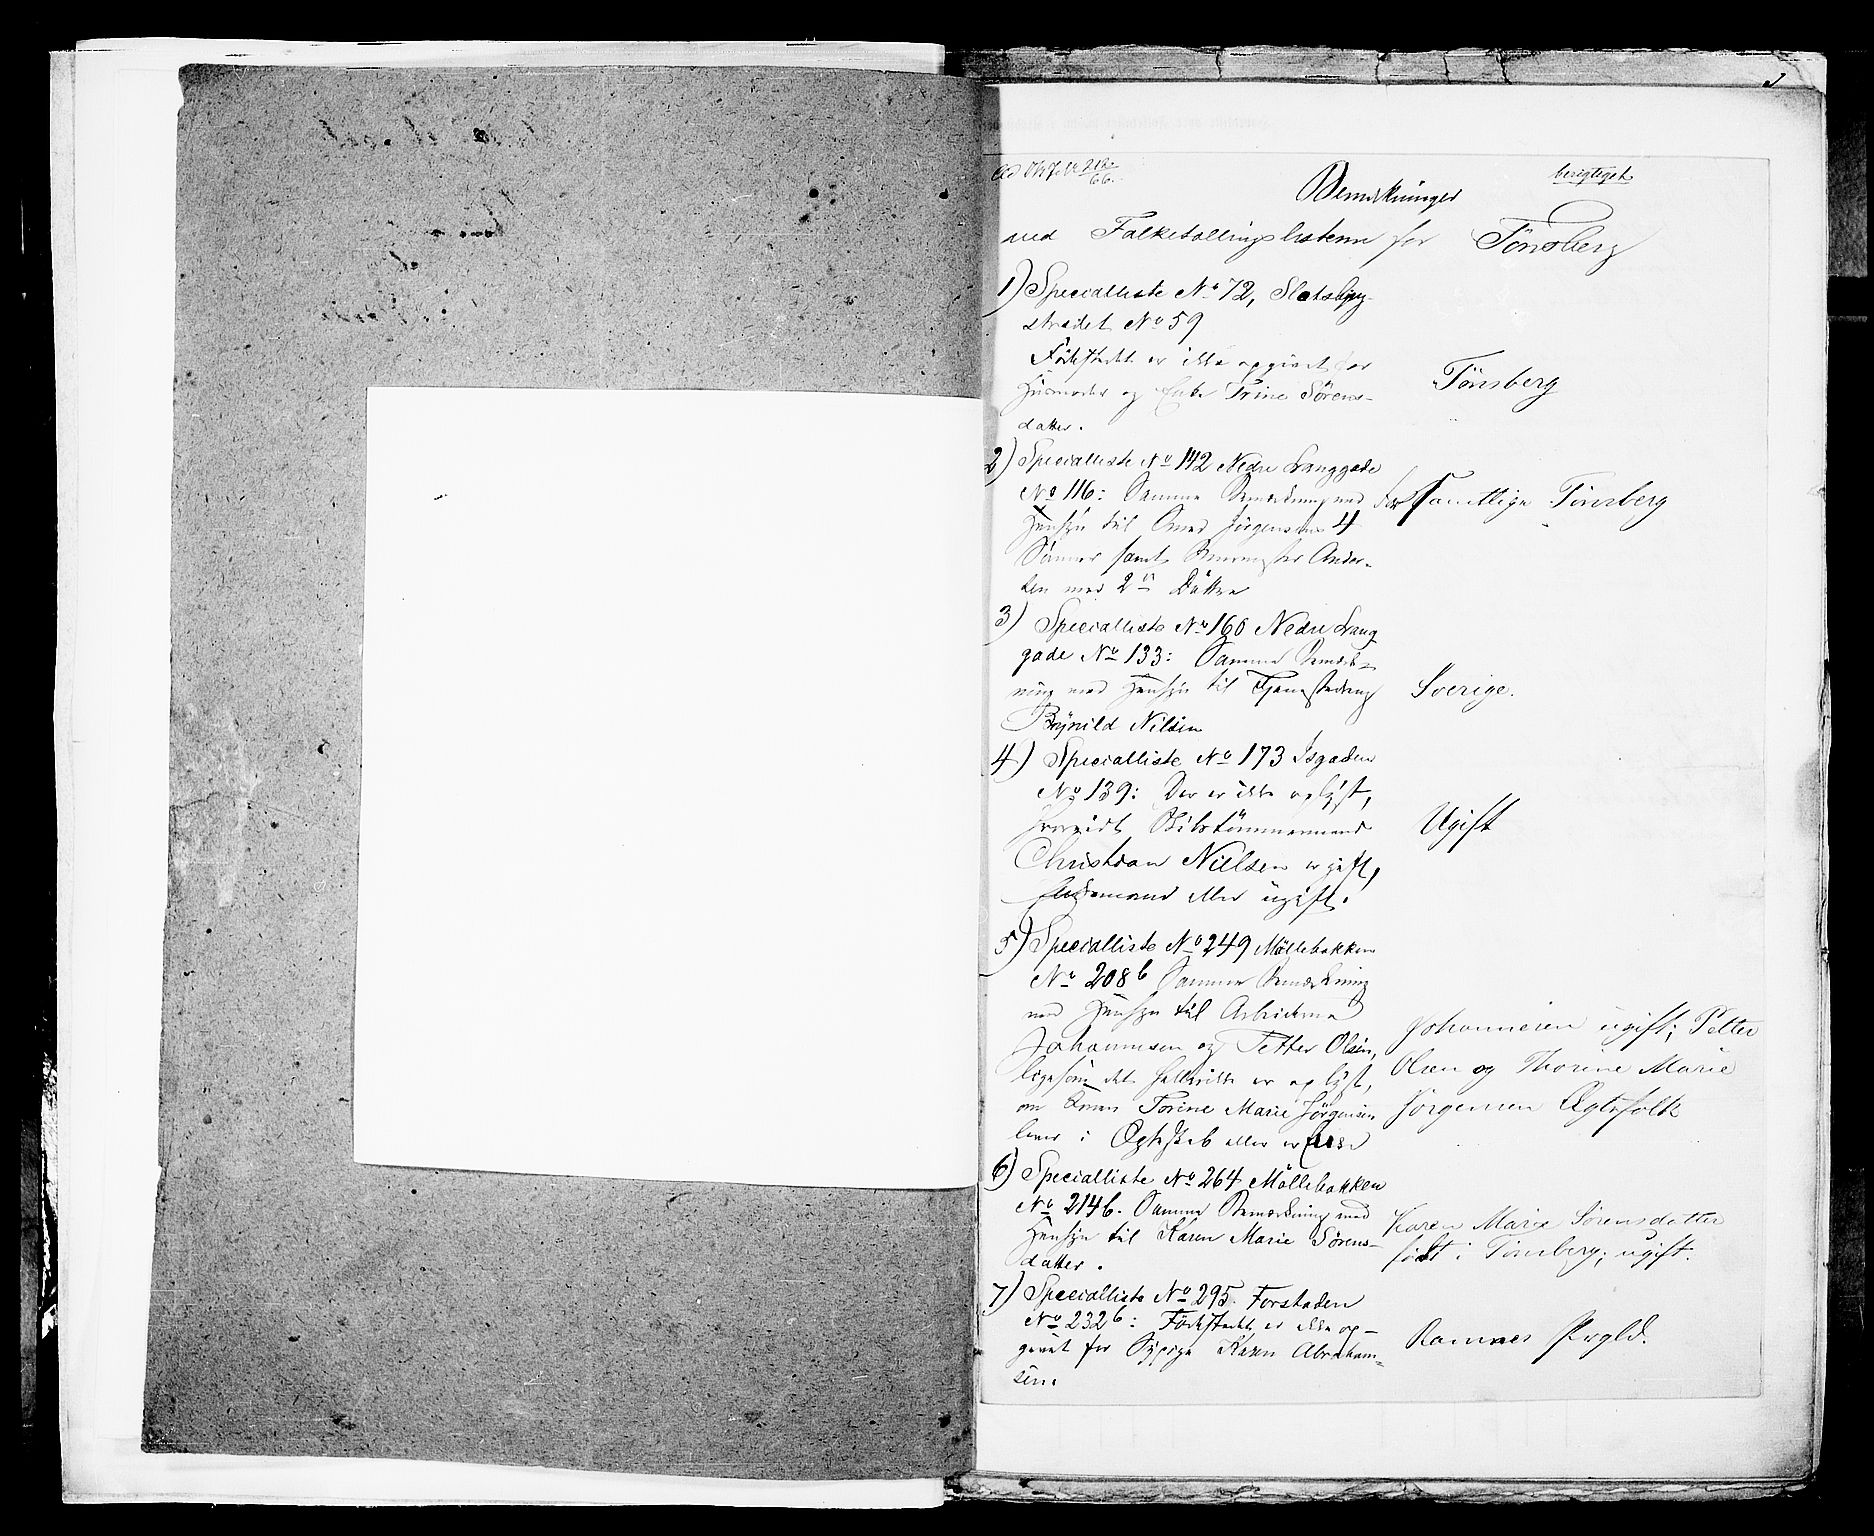 212
66
berigtiget
Bemærkninger
ved Folketællingslisterne for Tönsberg
1) Specialliste No 72, Slotsbjerg-
strædet No 59
Födestedet er ikke opgivet for
Huusmoder og Enke Trine Sörens-
datter.
Tönsberg
2) Specialliste No 142 Nedre Langgade
No 116: Samme Bemærkning med
Hensyn til Jörgensens 4
Sönner samt Ander-
sen med 2de Döttre
For samtlige Tönsberg
3) Specialliste No 160 Nedre Lang
gade No 133: Samme Bemærk-
ning med Hensyn til Tjenestedreng
Brynild Nilsen
Sverige.
4) Specialliste No 173 Isgaden
No 139: Der er ikke oplyst,
hvorvidt Skibstömmermand
Christian Nielsen er gift,
Enkemand eller ugift.
Ugift
5) Specialliste No 249 Möllebakken
No 208b Samme Bemærkning
med Hensyn til Arbeiderne
Johannesen og Petter Olsen,
ligesom det hellerikke er oplyst,
om Konen Torine Marie Jörgensen
lever i Ægteskab eller er Enke
Johannesen ugift; Petter
Olsen og Thorine Marie
Jörgensen Ægtefolk
6) Specialliste No 264 Möllebakken
No 214b. Samme Bemærkning med
Hensyn til Karen Marie Sörens-
datter.
Karen Marie Sörensdatter
födt i Tönsberg; ugift.
7) Specialliste No 295. Forstaden
No 232b: Födestedet er ikke op-
givet for Sypige Karen Abraham-
sen.
Ramnes Prgld.